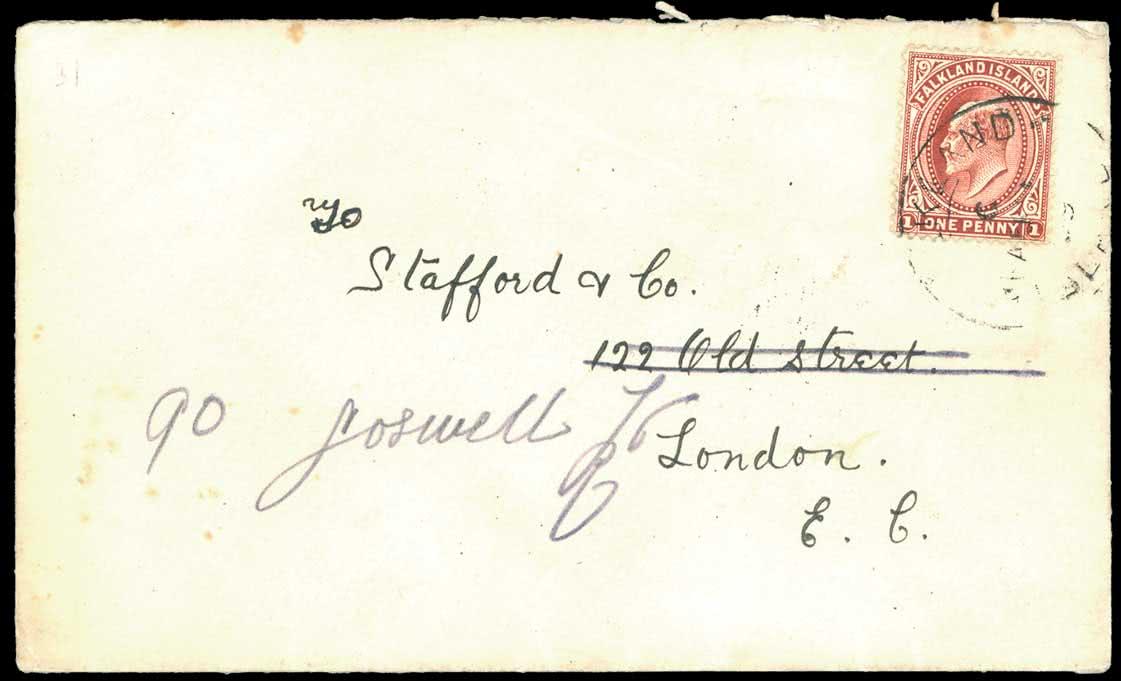 FALKLAND ISLANDS
1 ONE PENNY 1
To
Stafford & Co.
122 Old Street.
90 Goswell Rd
London.
E. C.